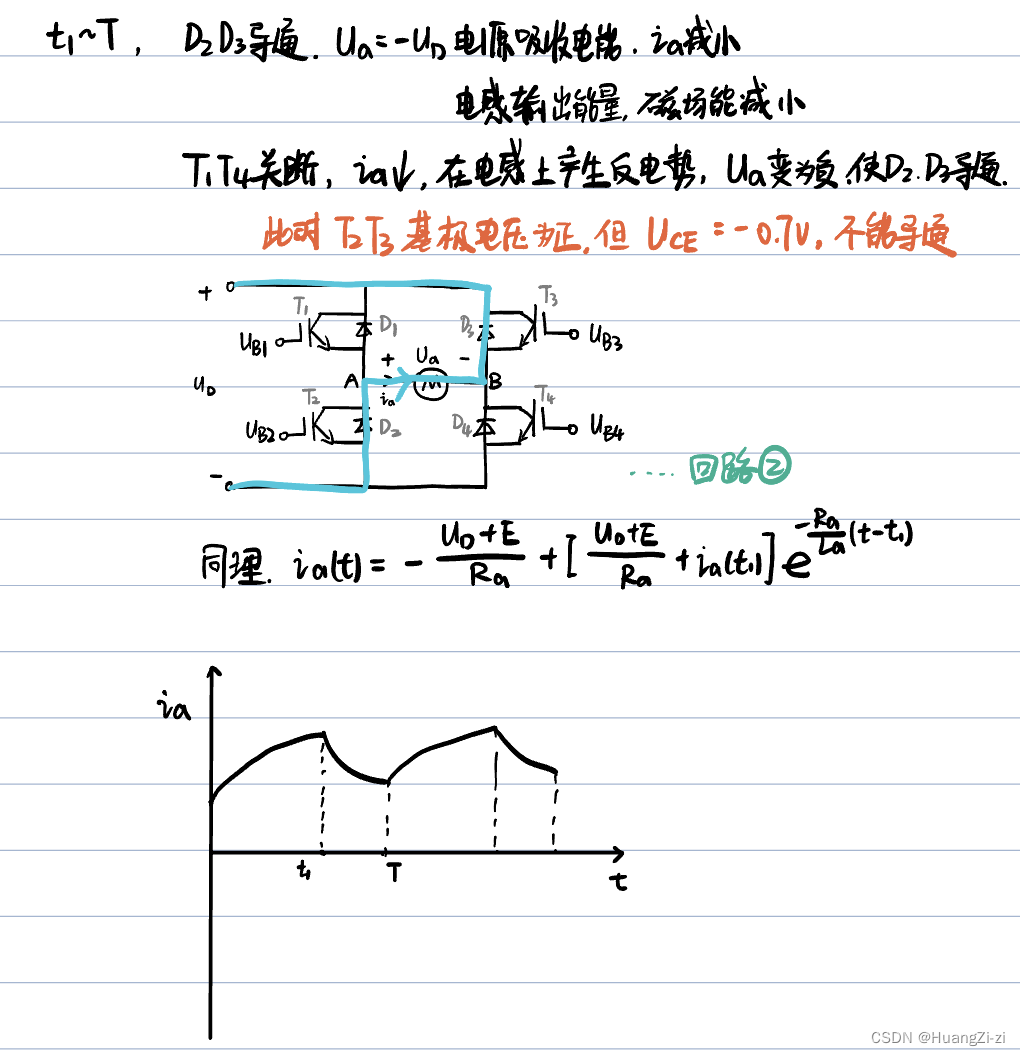 t₁~T, D₂D₃导通. Ua=-U_D 电源吸收电能. ia减小
电感输出能量, 磁场能减小
T₁T₄关断, ia↓, 在电感上产生反电势, Ua变为负.使D₂.D₃导通.
此时T₂T₃基极电压为正,但 U_CE = -0.7V, 不能导通
+ T₁ D₁ D₃ T₃
U_B1 + Ua - U_B3
U_D A ia M B
T₂ D₂ D₄ T₄
U_B2 U_B4
-
..... 回路②
同理. ia(t) = - (U_D+E)/Ra + [ (U_D+E)/Ra + ia(t₁) ] e^(-Ra/La (t-t₁))
ia
t₁ T
t
CSDN @HuangZi-zi